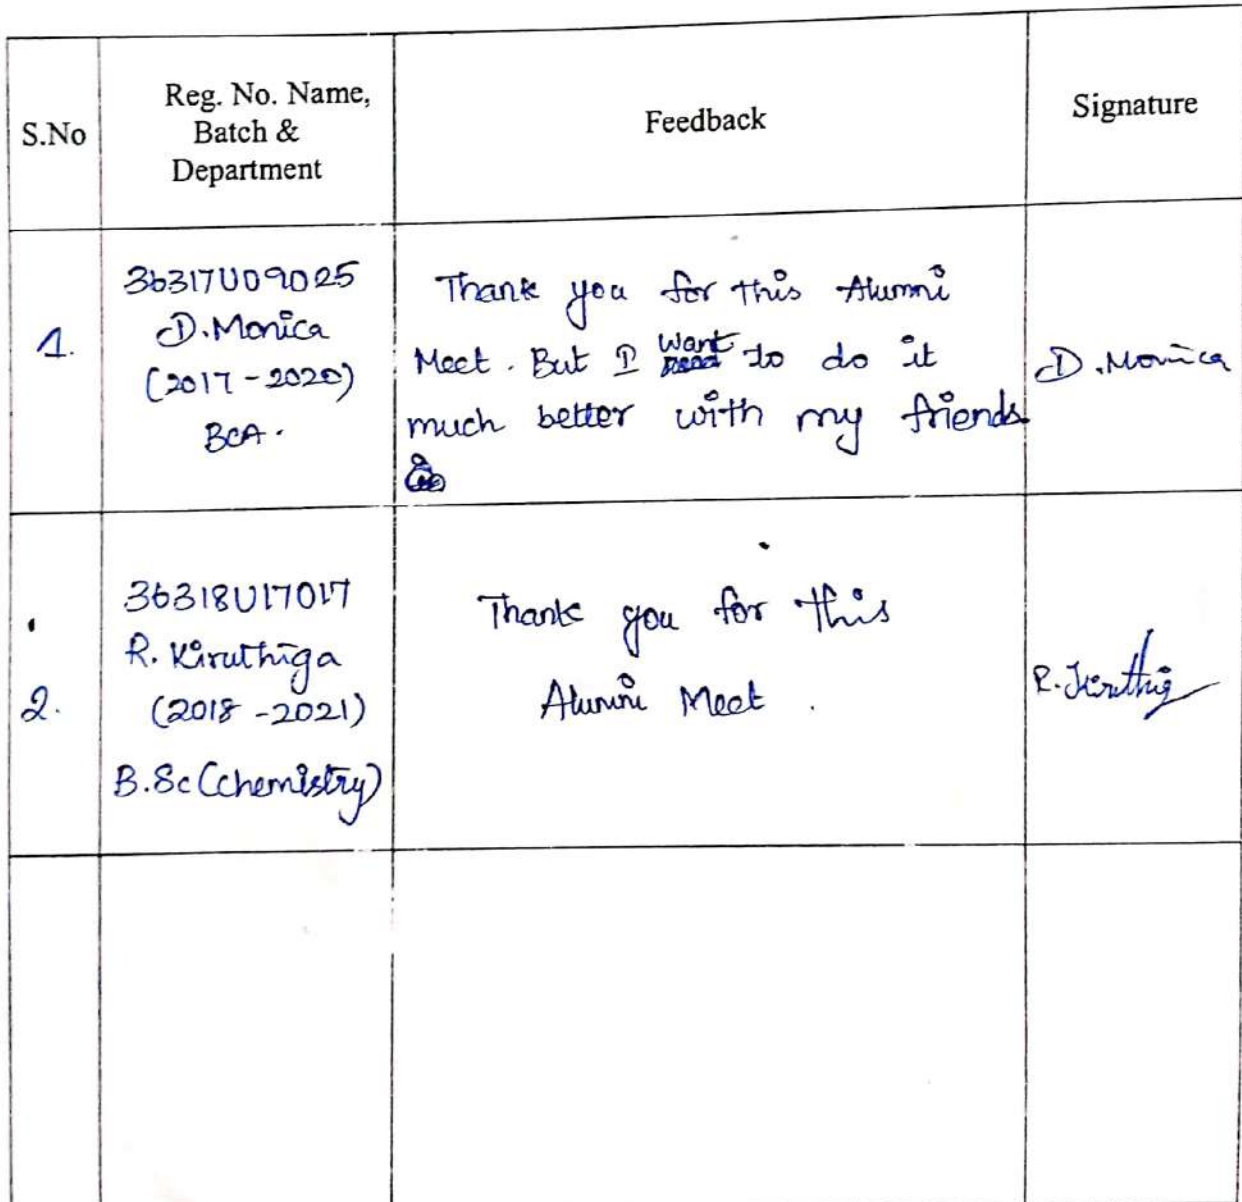 S.No
Reg. No. Name,
Batch &
Department
Feedback
Signature
1.
36317U09025
D.Monica
(2017-2020)
BCA.
Thank you for this Alumni
Meet. But I want to do it
much better with my friends
D.Monica
2.
36318U17017
R. Kiruthiga
(2018-2021)
B.Sc (chemistry)
Thank you for this
Alumni Meet.